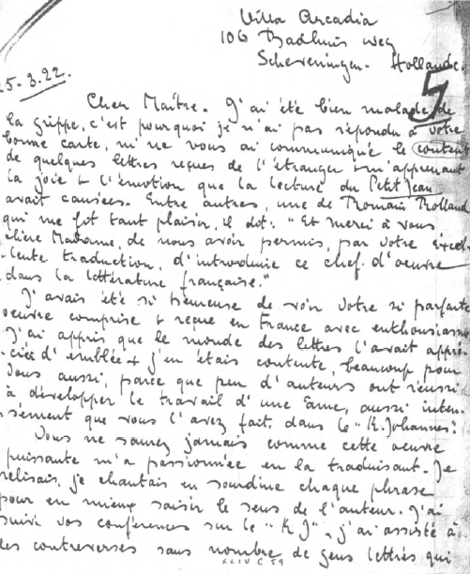 Villa Arcadia
106 Badhuis weg
Scheveningen. Hollande.
5
25-3.22.
Cher Maître. J'ai été bien malade de
la grippe, c'est pourquoi je n'ai pas répondu à votre
bonne carte, ni ne vous ai communiqué le content
de quelques lettres reçues de l'étranger & m'apprenant
la joie & l'émotion que la lecture du Petit Jean
avait causées. Entre autres, une de Romain Rolland
qui me fit tant plaisir, il dit: "Et merci à vous
chère Madame, de nous avoir permis, par votre excel-
-lente traduction, d'introduire ce chef d'oeuvre
dans la littérature française."
J'avais été si heureuse de voir votre si parfaite
oeuvre comprise & reçue en France avec enthousiasme
J'ai appris que le monde des lettres l'avait appré-
-ciée d'emblée & j'en étais contente, beaucoup pour
vous aussi, parce que peu d'auteurs ont réussi
à développer le travail d'une âme, aussi inten-
-sément que vous l'avez fait dans le "K. Johannes".
Vous ne saurez jamais comme cette oeuvre
puissante m'a passionnée en la traduisant. Je
relisais, je chantais en sourdine chaque phrase
pour en mieux saisir le sens de l'auteur. J'ai
suivi vos conférences sur le "K J", j'ai assisté à
des controverses sans nombre de gens lettrés qui
XXIV C 59